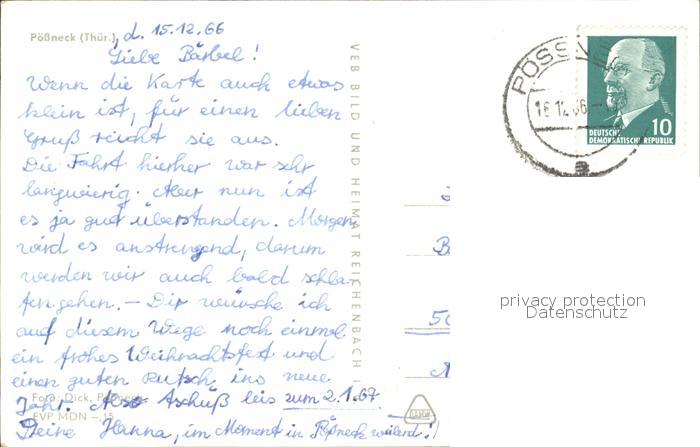 Pößneck (Thür.), d. 15.12.66
Liebe Bärbel!
Wenn die Karte auch etwas
klein ist, für einen lieben
Gruß reicht sie aus.
Die Fahrt hierher war sehr
langwierig. Aber nun ist
es ja gut überstanden. Morgen
wird es anstrengend, darum
werden wir auch bald schla-
fen gehen. – Dir wünsche ich
auf diesem Wege noch einmal
ein frohes Weihnachtsfest und
einen guten Rutsch ins neue
Foto: Dick, Pößneck
Jahr. Also Tschüß bis zum 2.1.67.
EVP MDN
Deine Hanna, (im Moment in Pößneck weilend!)
VEB BILD UND HEIMAT REICHENBACH I
PÖSSNE
16.12.66
a
10
DEUTSCHE
DEMOKRATISCHE REPUBLIK
B
50
privacy protection
Datenschutz